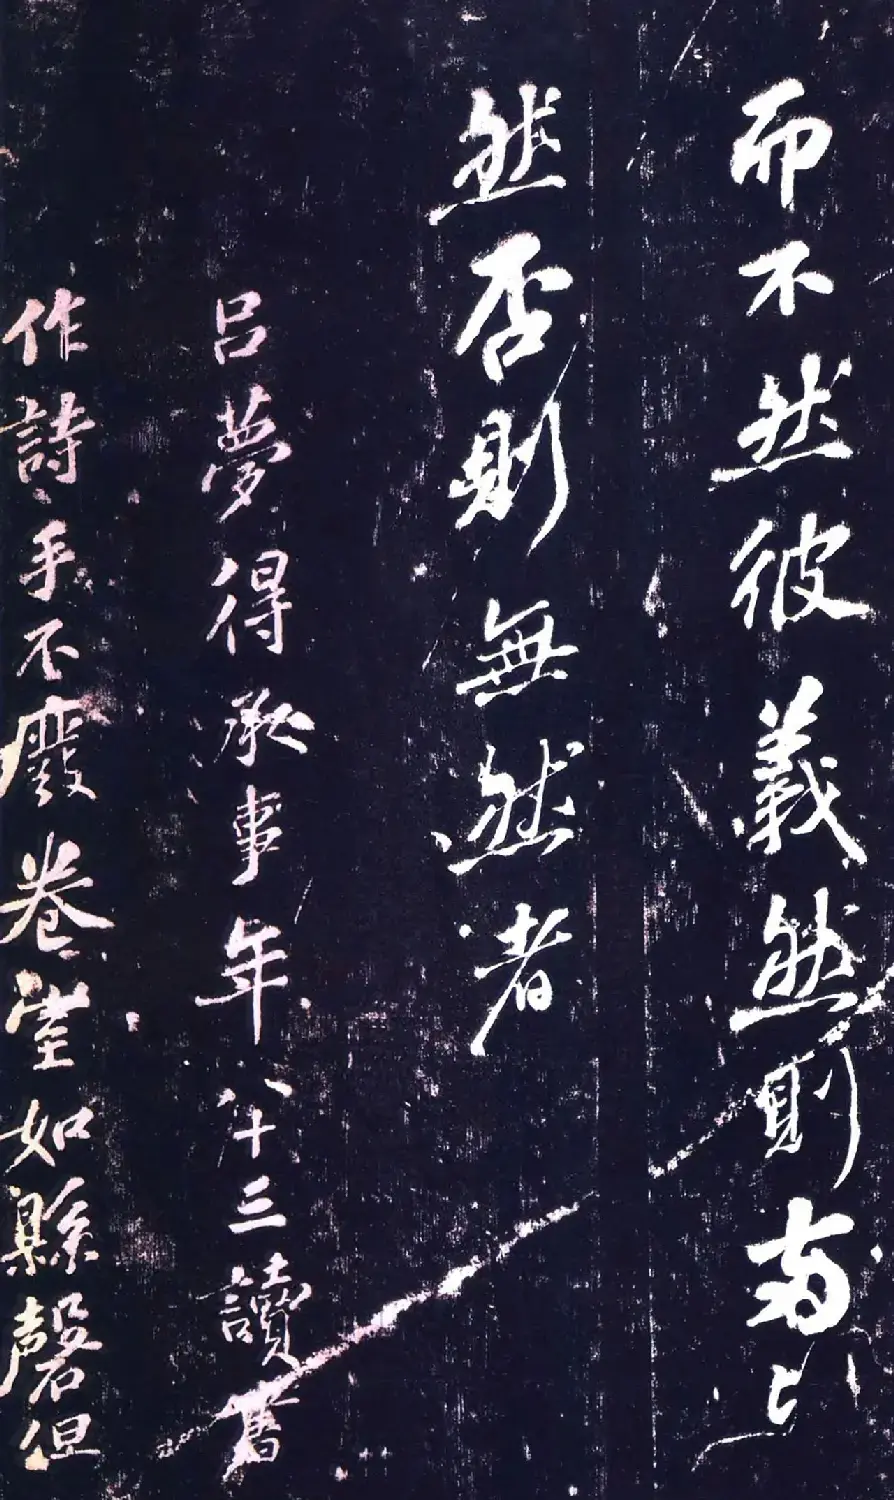 而不然彼義然則
然否則無然者
呂夢得承事年八十三讀書
作詩手不廢卷室如縣磬但